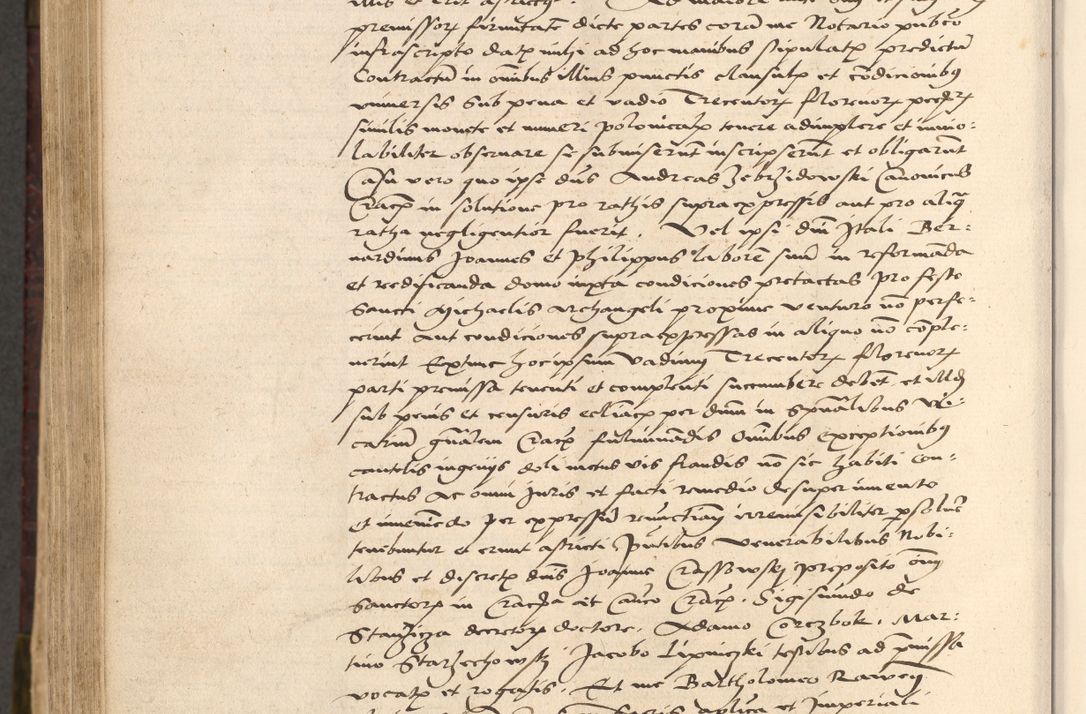 premissorum firmitatem dicte partes coram me Notario publico
infrascripto datis mihi ad hoc manibus stipulatis predictum
Contractum in omnibus illius punctis clausulis et condicionibus
universis sub pena et vadio Trecentorum florenorum peccuniarum
similis monete et numeri polonicalis tenere adimplere et invio:
labiliter observare se submiserunt inscripserunt et obligarunt
Casu vero quo ipse dominus Andreas Zebrzidowski Canonicus
Cracoviensis in solutione pro rathis supraexpressis aut pro aliqua
ratha negligentior fuerit. Vel ipsi domini Itali Ber:
nardinus Joannes et Philippus laborem suum in reformanda
et reedificanda domo iuxta condiciones pretactas pro festo
Sancti Michaelis Archangeli proxime venturo non perfe:
cerint aut condiciones supraexpressas in aliquo non comple:
verint Extunc hoc ipsum vadium Trecentorum florenorum
parti premissa tenenti et complenti succumbere debent et illud
sub penis et censuris ecclesiasticis per dominum in spiritualibus Vi:
carium generalem Cracoviensem fulminandis Omnibus exceptionibus
cautelis ingeniis doli metus vis fraudis non sic habiti con:
tractus ac omni juris et facti remedio desuper invento
et inveniendo per expressum renunctiatis irremisibiliter persolvere
tenebuntur et erunt astricti Presentibus Venerabilibus Nobi:
libus et discretis dominis Joanne Crassowsky preposito omnium
Sanctorum in Cracovia et Canonico Cracoviensi. Sigismundo de
Stanzicza decretorum doctore, Adamo Corczbok, Mar:
tino Starzechowsky Jacobo Lipniczky testibus ad premissa
vocatis et rogatis. Et me Bartholomeo Raweny